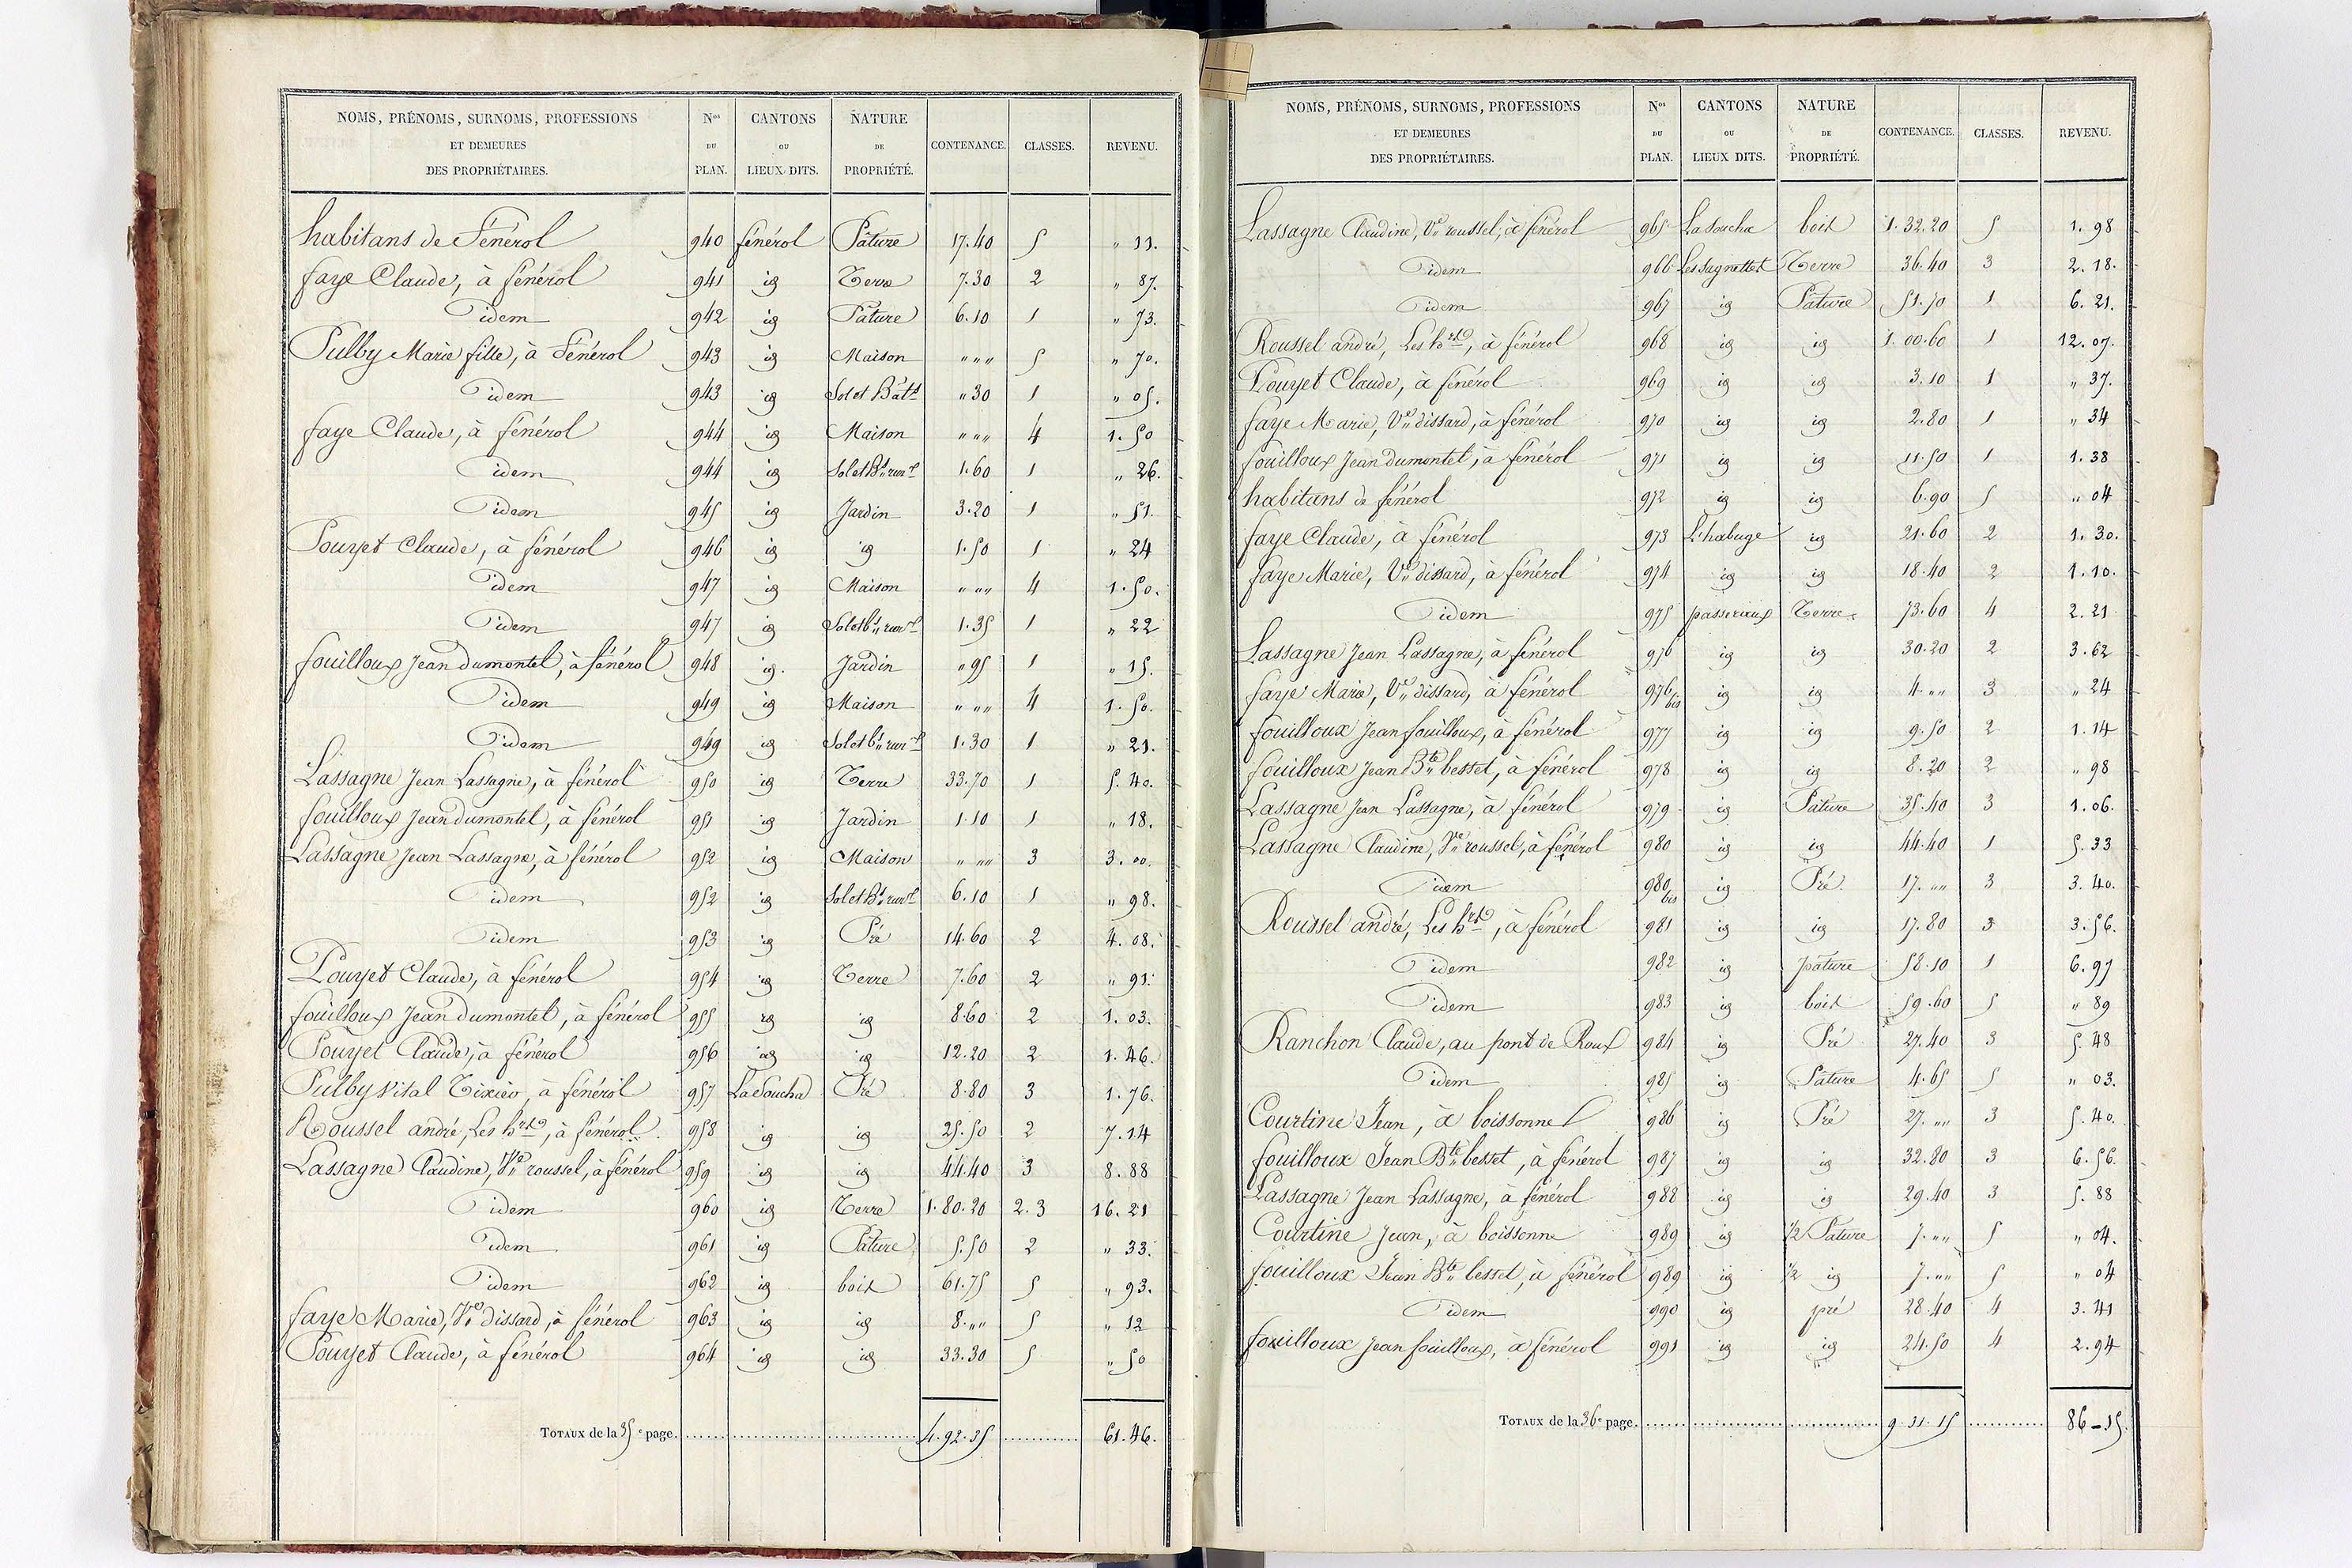 NOMS, PRÉNOMS, SURNOMS, PROFESSIONS ET DEMEURES DES PROPRIÉTAIRES. Nos DU PLAN. CANTONS OU LIEUX DITS. NATURE DE PROPRIÉTÉ. CONTENANCE. CLASSES. REVENU.
habitans de Fénérol 940 fénérol Pâture 17.40 5 " 11.
faye Claude, à fénérol 941 id Terre 7.30 2 " 87.
idem 942 id Pâture 6.10 1 " 73.
Pulby Marie fille, à Fénérol 943 id Maison " " " 5 " 70.
idem 943 id Sol et Bâts " 30 1 " 05.
faye Claude, à fénérol 944 id Maison " " " 4 1.50
idem 944 id Sol et Bt rurl 1.60 1 " 26.
idem 945 id Jardin 3.20 1 " 51.
Pouyet Claude, à fénérol 946 id id 1.50 1 " 24
idem 947 id Maison " " " 4 1.50.
idem 947 id Sol et bt rurl 1.35 1 " 22
fouilloux Jean dumontel, à fénérol 948 id. Jardin " 95 1 " 15.
idem 949 id Maison " " " 4 1.50.
idem 949 id Sol et bt rurl 1.30 1 " 21.
Lassagne Jean Lassagne, à fénérol 950 id Terre 33.70 1 5.40.
fouilloux Jean dumontel, à fénérol 951 id Jardin 1.10 1 " 18.
Lassagne Jean Lassagne, à fénérol 952 id Maison " " " 3 3.00.
idem 952 id Sol et Bt rurl 6.10 1 " 98.
idem 953 id Pré 14.60 2 4.08.
Pouyet Claude, à fénérol 954 id Terre 7.60 2 " 91.
fouilloux Jean dumontel, à fénérol 955 id id 8.60 2 1.03.
Pouyet Claude, à fénérol 956 id id 12.20 2 1.46.
Pulby Vital Tixier, à fénérol 957 La Soucha Pré 8.80 3 1.76.
Roussel andré, Les hrs, à fénérol. 958 id id 25.50 2 7.14
Lassagne Claudine, Ve roussel, à fénérol 959 id id 44.40 3 8.88
idem 960 id Terre 1.80.20 2.3 16.21
idem 961 id Pâture 5.50 2 " 33.
idem 962 id bois 61.75 5 " 93.
faye Marie, Ve dissard, à fénérol 963 id id 8. " " 5 " 12
Pouyet Claude, à fénérol 964 id id 33.30 5 " 50
TOTAUX de la 35e page. 4.92.35 61.46.
NOMS, PRÉNOMS, SURNOMS, PROFESSIONS ET DEMEURES DES PROPRIÉTAIRES. Nos DU PLAN. CANTONS OU LIEUX DITS. NATURE DE PROPRIÉTÉ. CONTENANCE. CLASSES. REVENU.
Lassagne Claudine, Ve roussel, à fénérol 965 La Soucha bois 1.32.20 5 1.98
idem 966 Les Sagnettes Terre 36.40 3 2.18.
idem 967 id Pâture 51.70 1 6.21.
Roussel andré, Les hrs, à fénérol 968 id id 1.00.60 1 12.07.
Pouyet Claude, à fénérol 969 id id 3.10 1 " 37.
faye Marie, Ve dissard, à fénérol 970 id id 2.80 1 " 34
fouilloux Jean dumontel, à fénérol 971 id id 11.50 1 1.38
habitans de fénérol 972 id id 6.90 5 " 04
faye Claude, à fénérol 973 L'habuge id 21.60 2 1.30.
faye Marie, Ve dissard, à fénérol 974 id id 18.40 2 1.10.
idem 975 passeraux Terre. 73.60 4 2.21
Lassagne Jean Lassagne, à fénérol 976 id id 30.20 2 3.62
faye Marie, Ve dissard, à fénérol 976 bis id id 4. " " 3 " 24
fouilloux Jean fouilloux, à fénérol 977 id id 9.50 2 1.14
fouilloux Jean Bte besset, à fénérol 978 id id 8.20 2 " 98
Lassagne Jean Lassagne, à fénérol 979 id Pâture 35.40 3 1.06.
Lassagne Claudine, Ve roussel, à fénérol 980 id id 44.40 1 5.33
idem 980 bis id Pré 17. " " 3 3.40.
Roussel andré, Les hrs, à fénérol 981 id id 17.80 3 3.56.
idem 982 id pâture 58.10 1 6.97
idem 983 id bois 59.60 5 " 89
Ranchon Claude, au pont de Roux 984 id Pré 27.40 3 5.48
idem 985 id Pâture 4.65 5 " 03.
Courtine Jean, à boissonne 986 id Pré 27. " " 3 5.40.
fouilloux Jean Bte besset, à fénérol 987 id id 32.80 3 6.56.
Lassagne Jean Lassagne, à fénérol 988 id id 29.40 3 5.88
Courtine Jean, à boissonne 989 id 1/2 Pâture 7. " " 5 " 04.
fouilloux Jean Bte besset, à fénérol 989 id 1/2 id 7. " " 5 " 04
idem 990 id pré 28.40 4 3.41
fouilloux Jean fouilloux, à fénérol 991 id id 24.50 4 2.94
TOTAUX de la 36e page. 9.31.15 86-15.